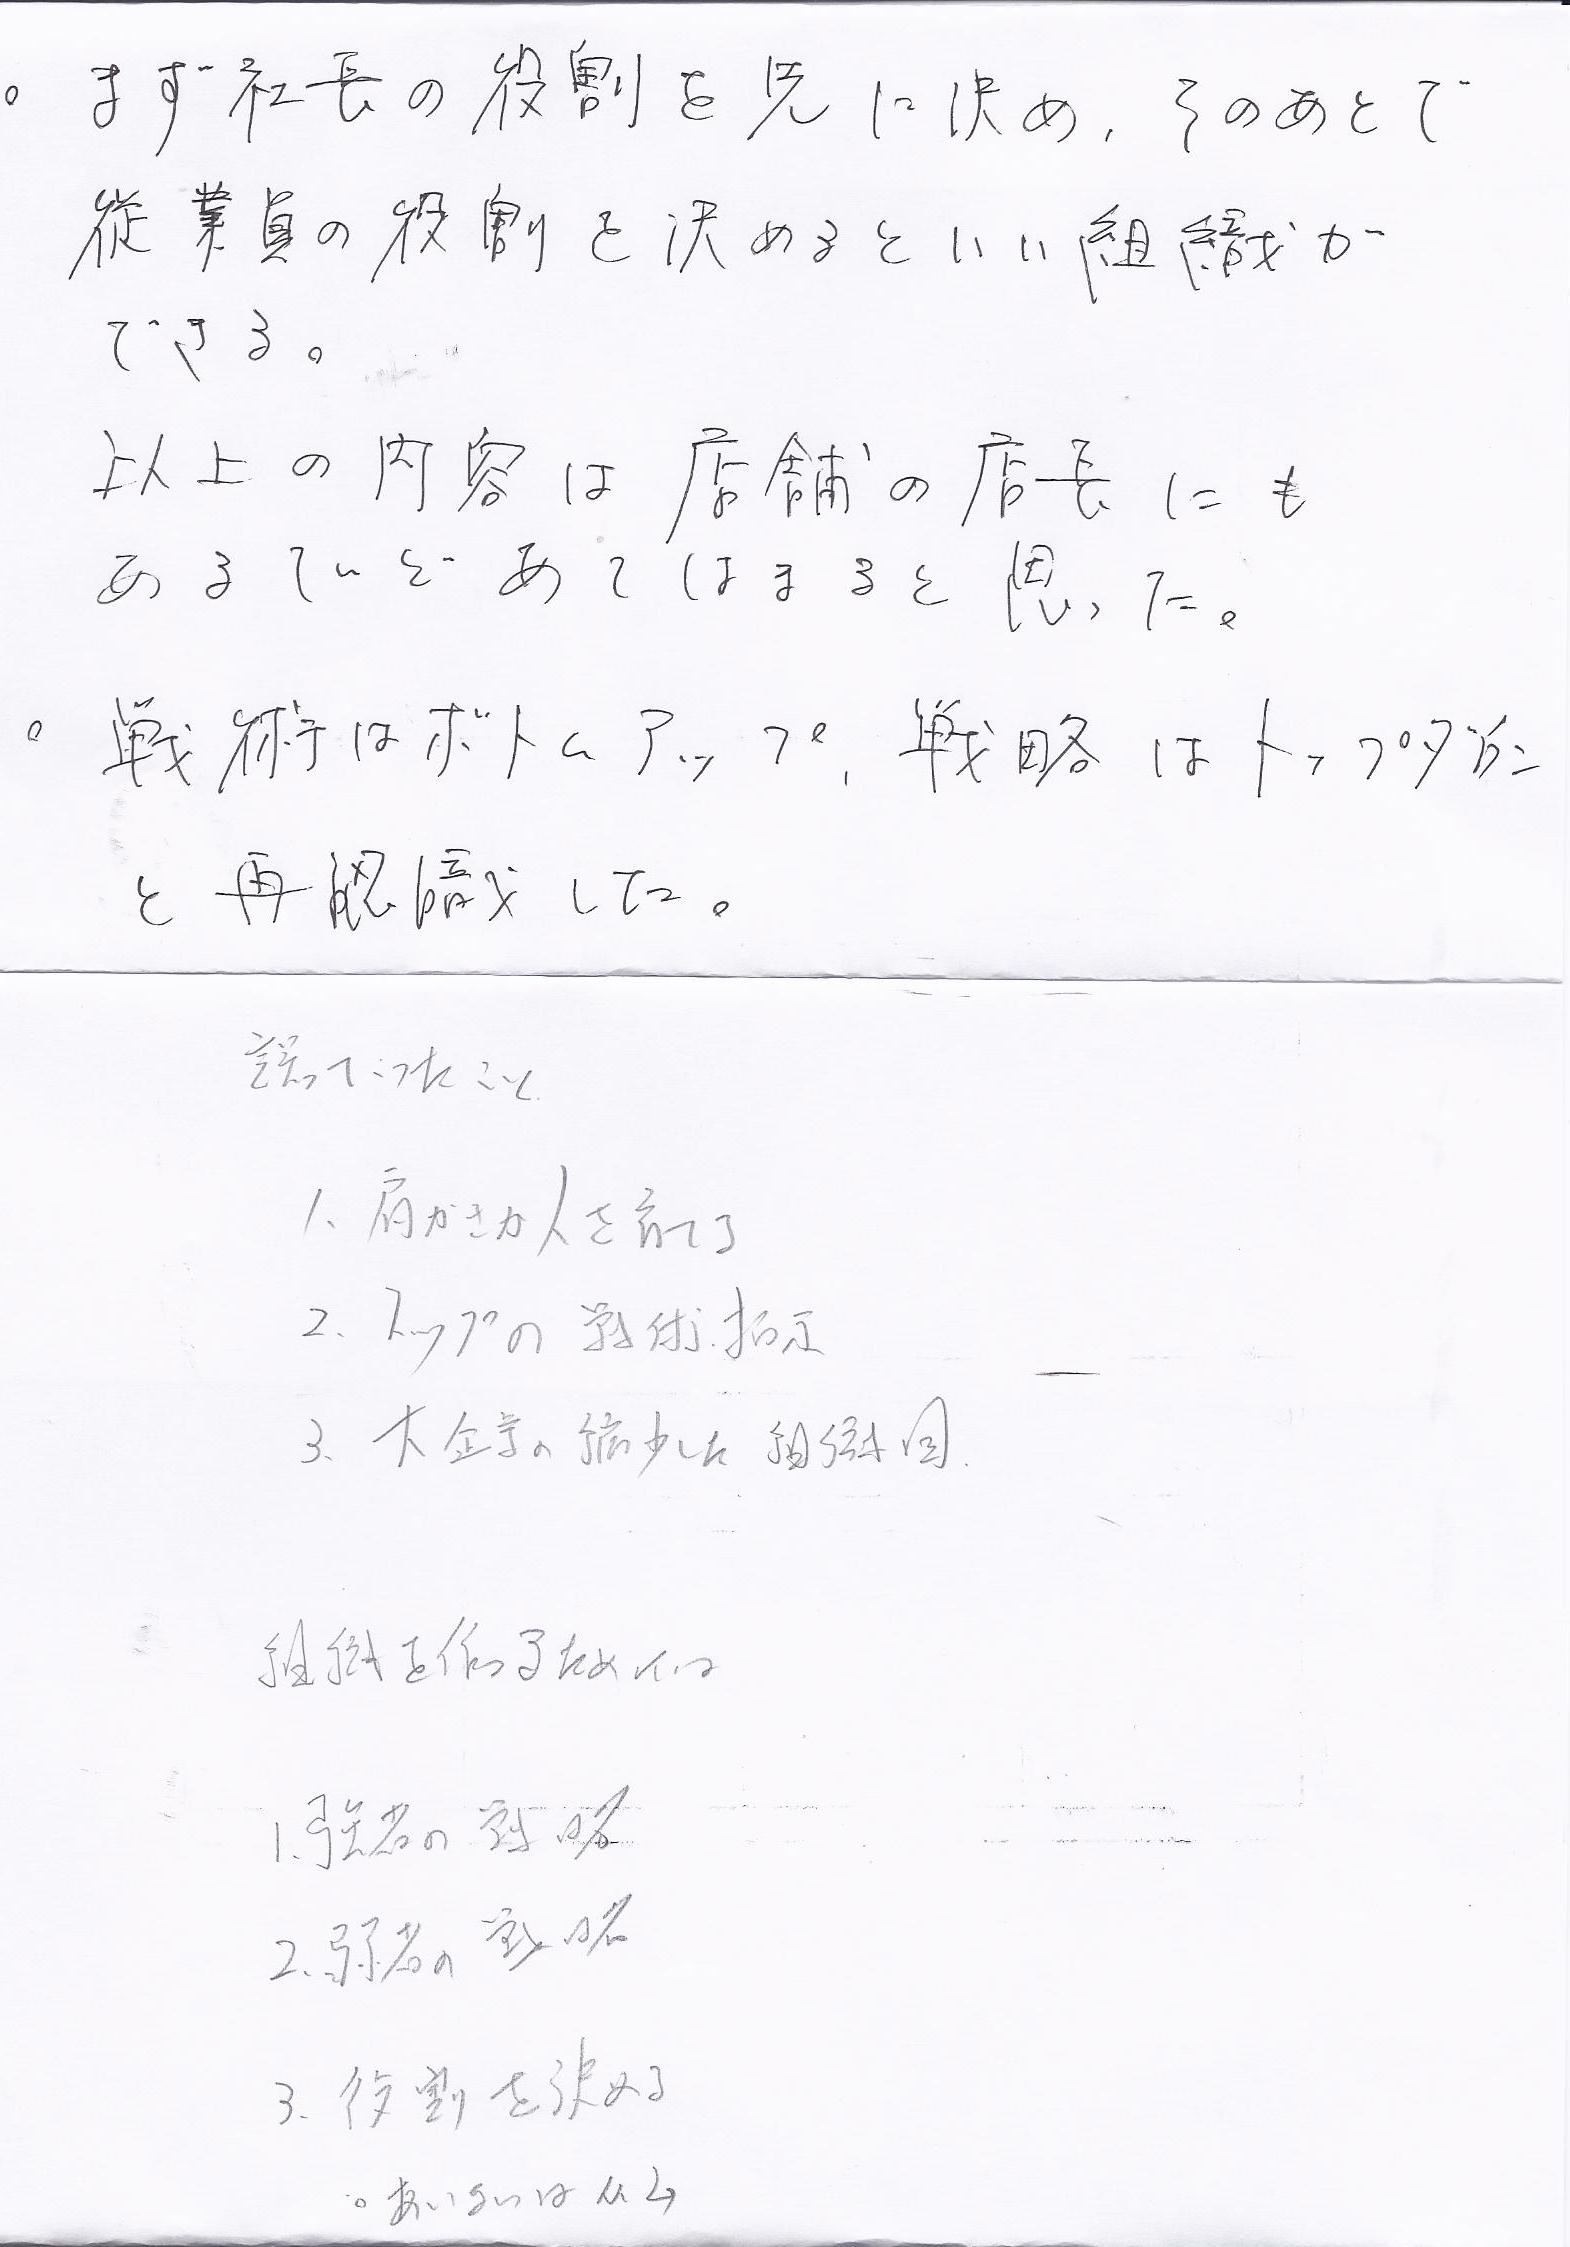 。まず社長の役割を先に決め、そのあとで
従業員の役割を決めるといい組織が
できる。
以上の内容は店舗の店長にも
あるていどあてはまると思った。
。戦術はボトムアップ、戦略はトップダウン
と再認識した。
誤っていたこと
1. 肩がきが人を育てる
2. トップの戦術指示
3. 大企業の縮少した組織図.
組織を作るためには
1. 強者の戦略
2. 弱者の戦略
3. 役割を決める
。あいさつは